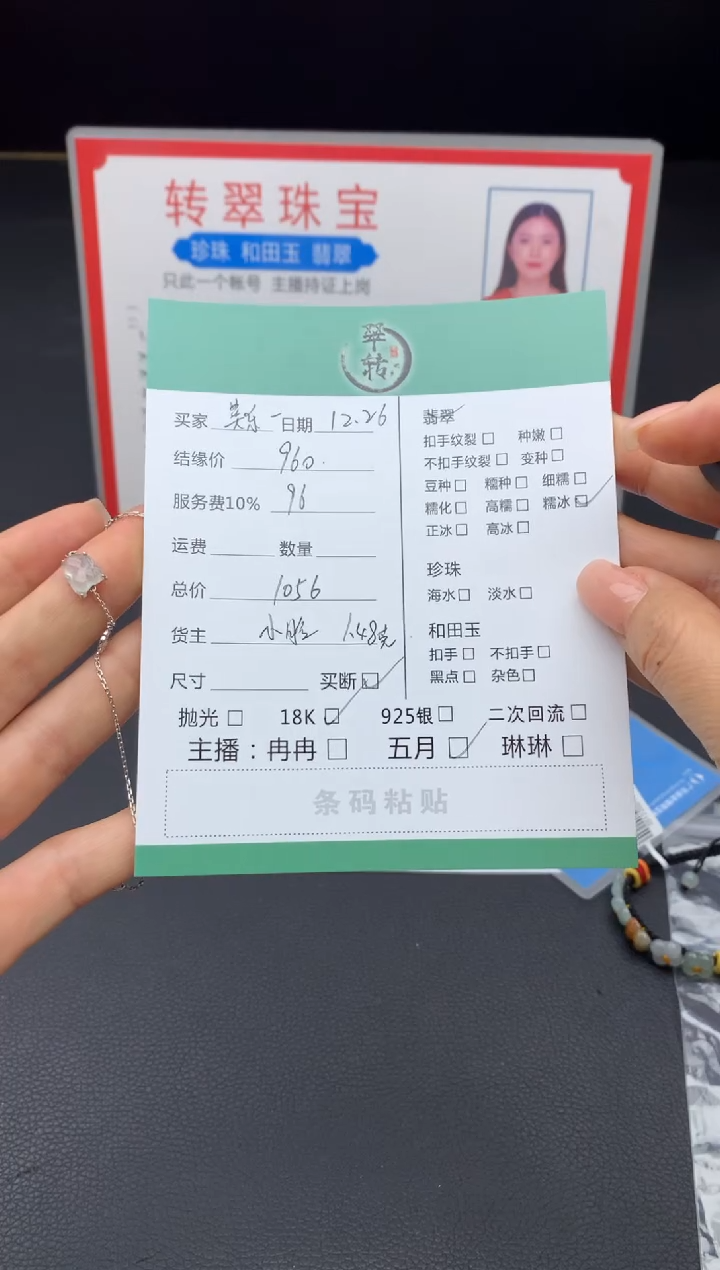 转翠珠宝
珍珠 和田玉 翡翠
只此一个帐号 主播持证上岗
翠转
买家 日期 12.26
结缘价 960.
服务费10% 96
运费 数量
总价 1056
货主 小 1.48克
尺寸 买断
翡翠
扣手纹裂 种嫩
不扣手纹裂 变种
豆种 糯种 细糯
糯化 高糯 糯冰
正冰 高冰
珍珠
海水 淡水
和田玉
扣手 不扣手
黑点 杂色
抛光 18K 925银 二次回流
主播：冉冉 五月 琳琳
条码粘贴